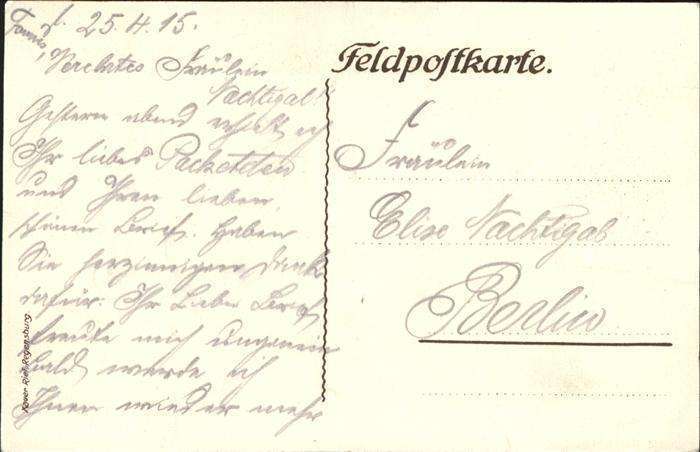 d. 25.4.15.
Verehrtes Fräulein
Nachtigal!
Gestern abend erhielt ich
Ihr liebes Packetchen
und Ihren lieben
schönen Brief. Haben
Sie herzinnigen Dank
dafür. Ihr lieber Brief
freute mich ungemein
bald werde ich
Ihnen wieder mehr
Feldpostkarte.
Fräulein
Elise Nachtigal
Berlin
Xaver Riel, Regensburg.